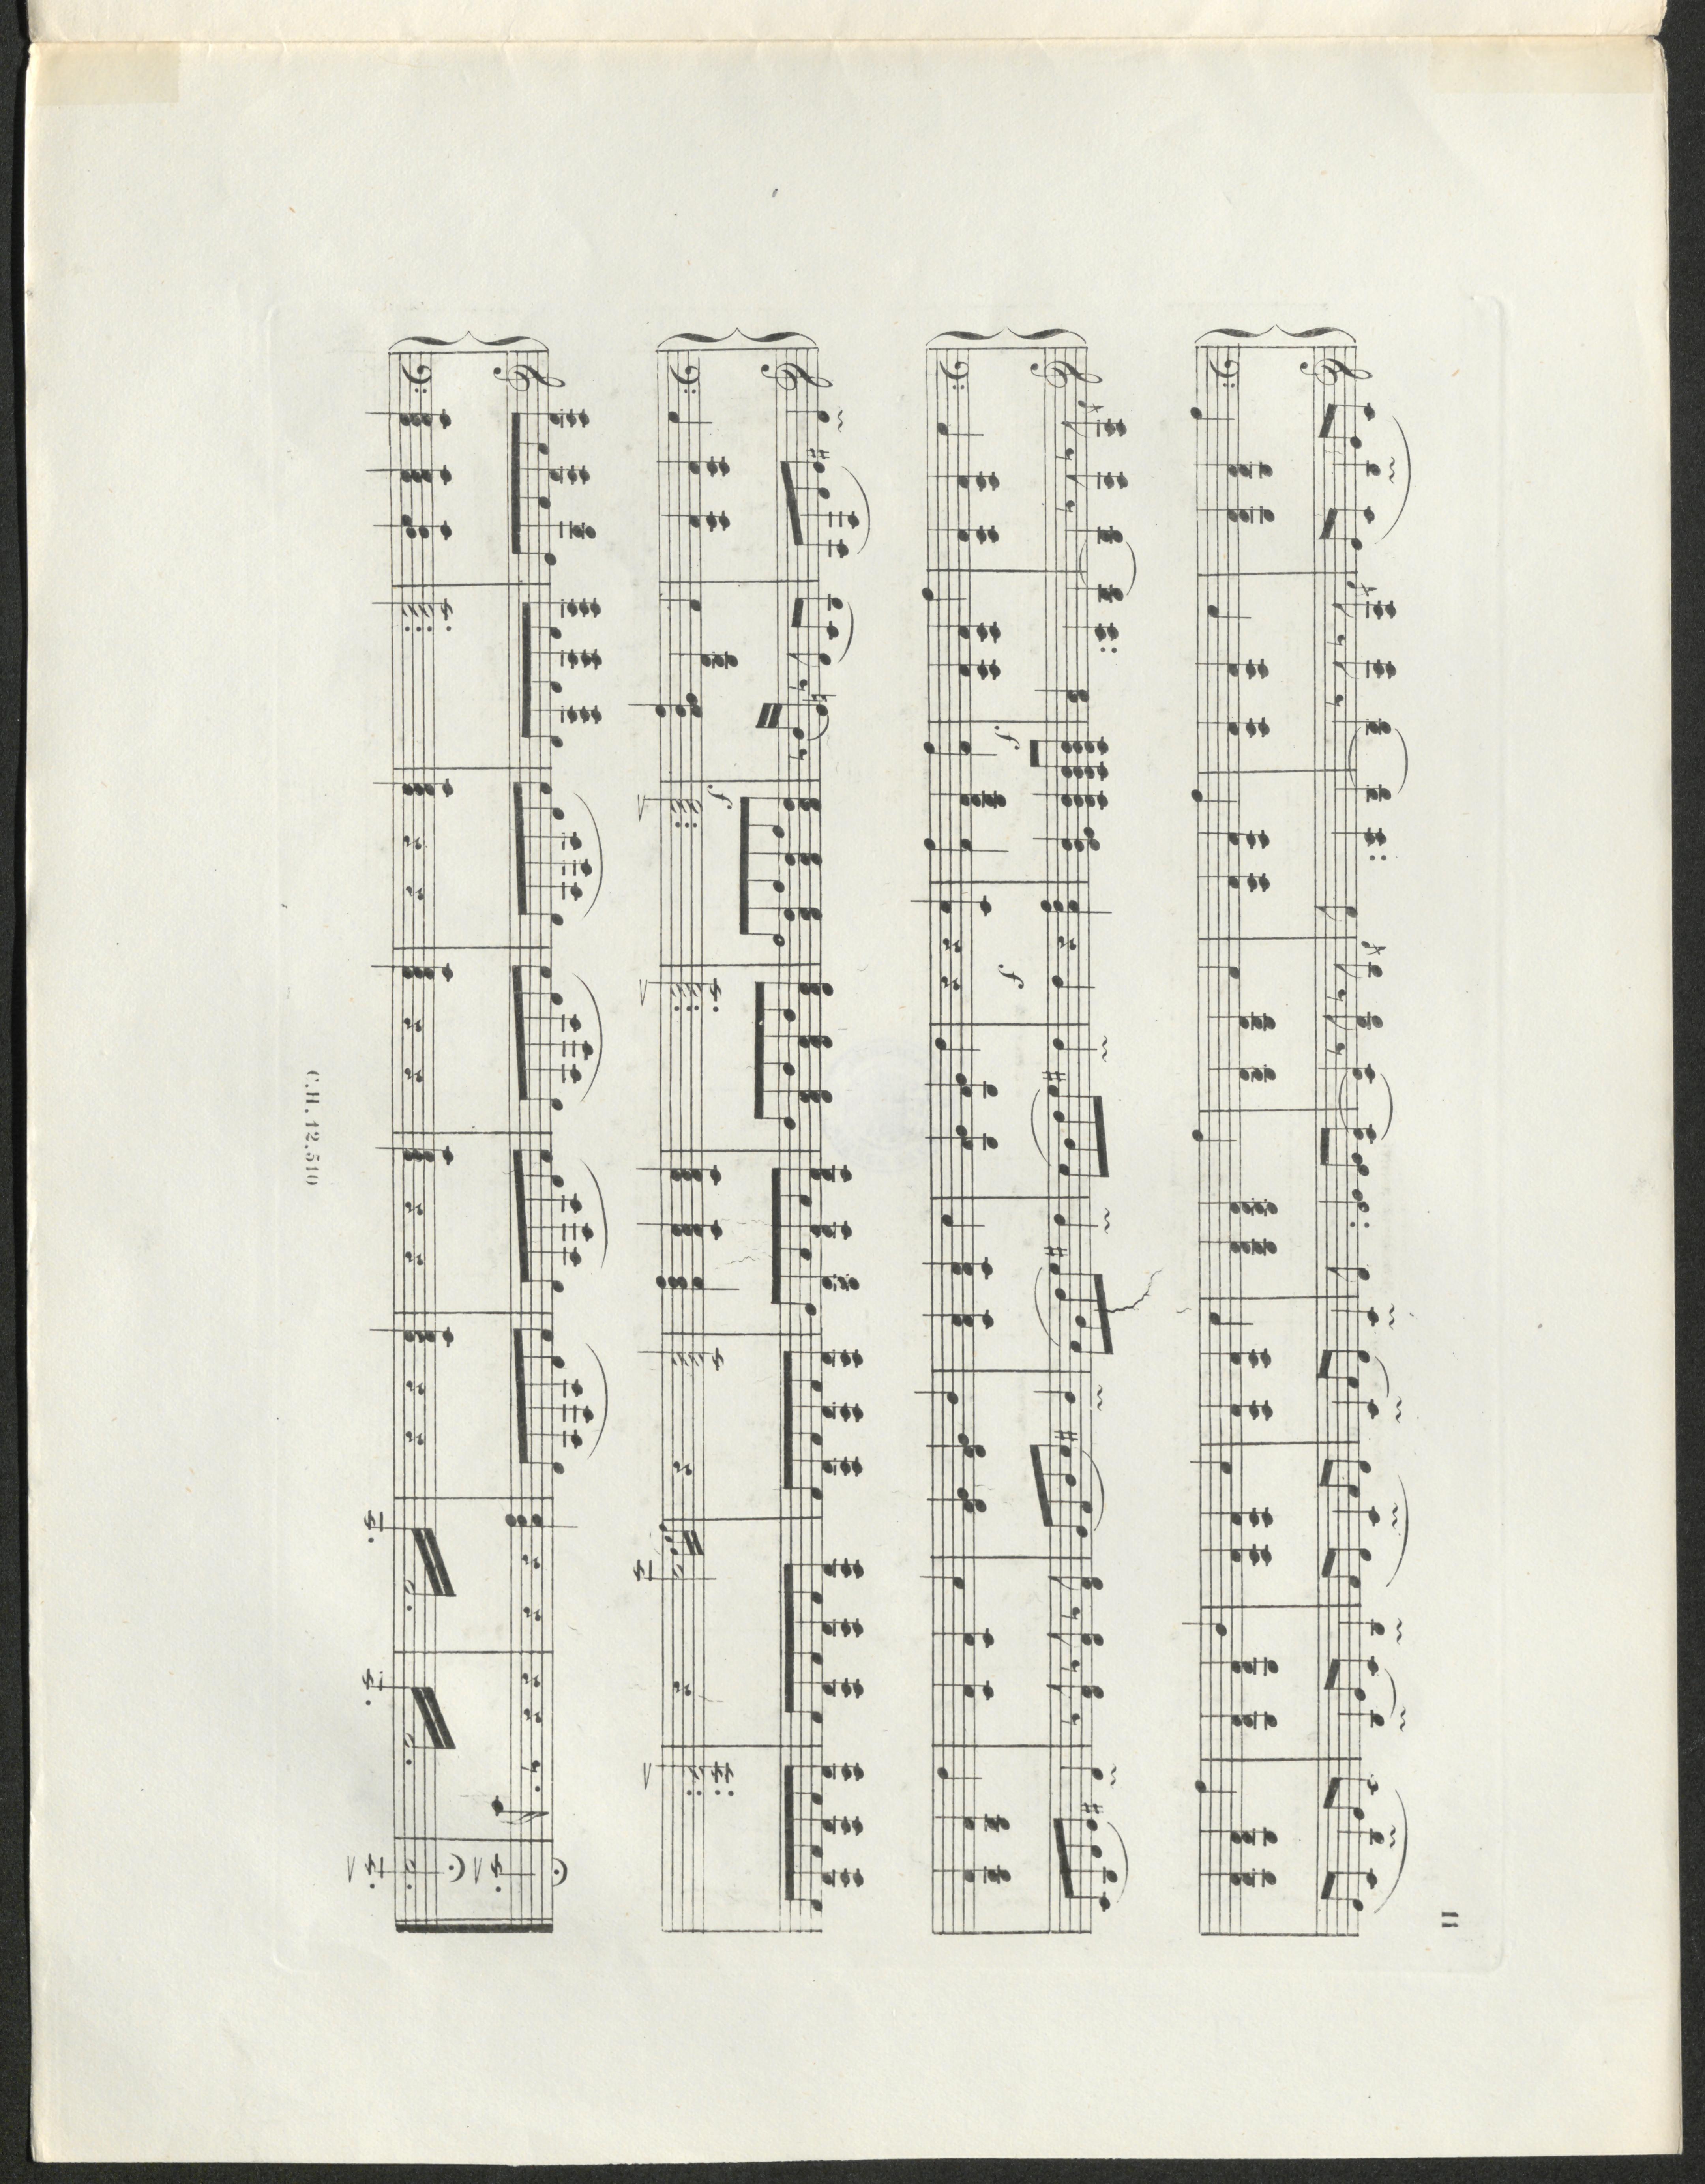 11
f
f
f
C.H. 12.510